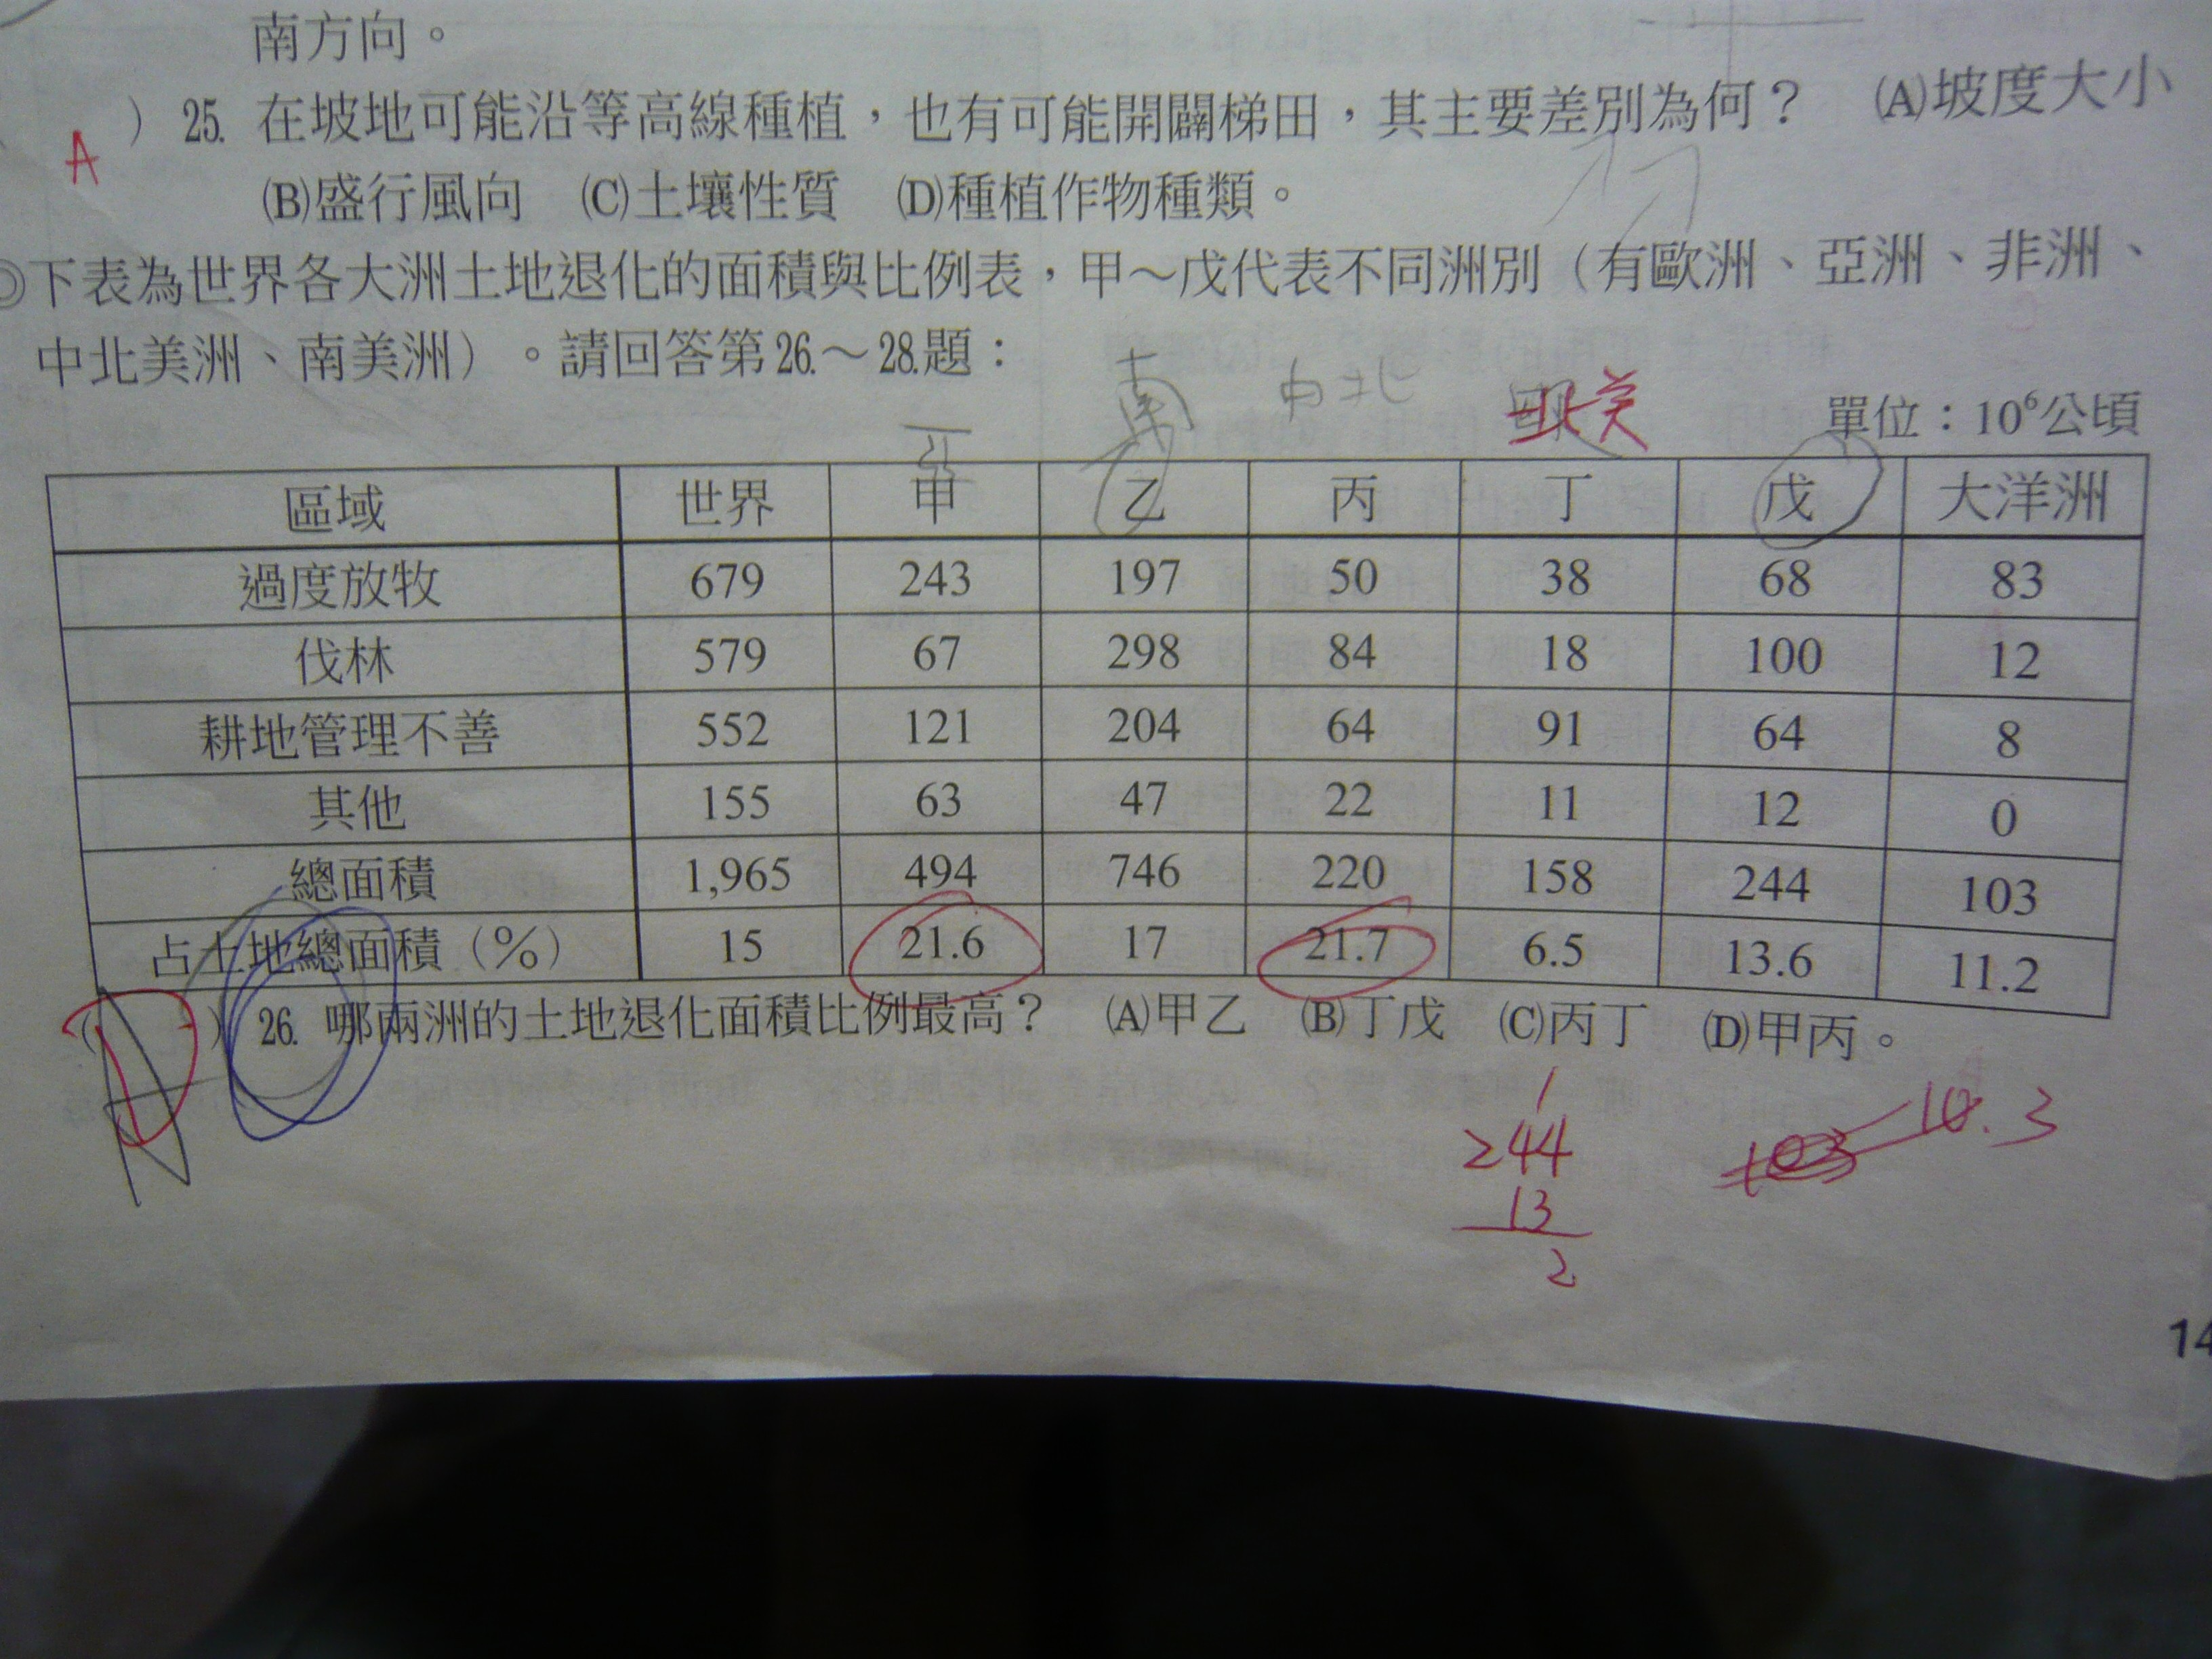 南方向。
A ) 25. 在坡地可能沿等高線種植，也有可能開闢梯田，其主要差別為何？ (A)坡度大小
(B)盛行風向 (C)土壤性質 (D)種植作物種類。
◎下表為世界各大洲土地退化的面積與比例表，甲～戊代表不同洲別（有歐洲、亞洲、非洲、
中北美洲、南美洲）。請回答第26.～28.題：
亞 南 中北 北美
單位：10⁶公頃
區域 世界 甲 乙 丙 丁 戊 大洋洲
過度放牧 679 243 197 50 38 68 83
伐林 579 67 298 84 18 100 12
耕地管理不善 552 121 204 64 91 64 8
其他 155 63 47 22 11 12 0
總面積 1,965 494 746 220 158 244 103
占土地總面積（％） 15 21.6 17 21.7 6.5 13.6 11.2
D ) 26. 哪兩洲的土地退化面積比例最高？ (A)甲乙 (B)丁戊 (C)丙丁 (D)甲丙。
1
244
13
2
10.3
14